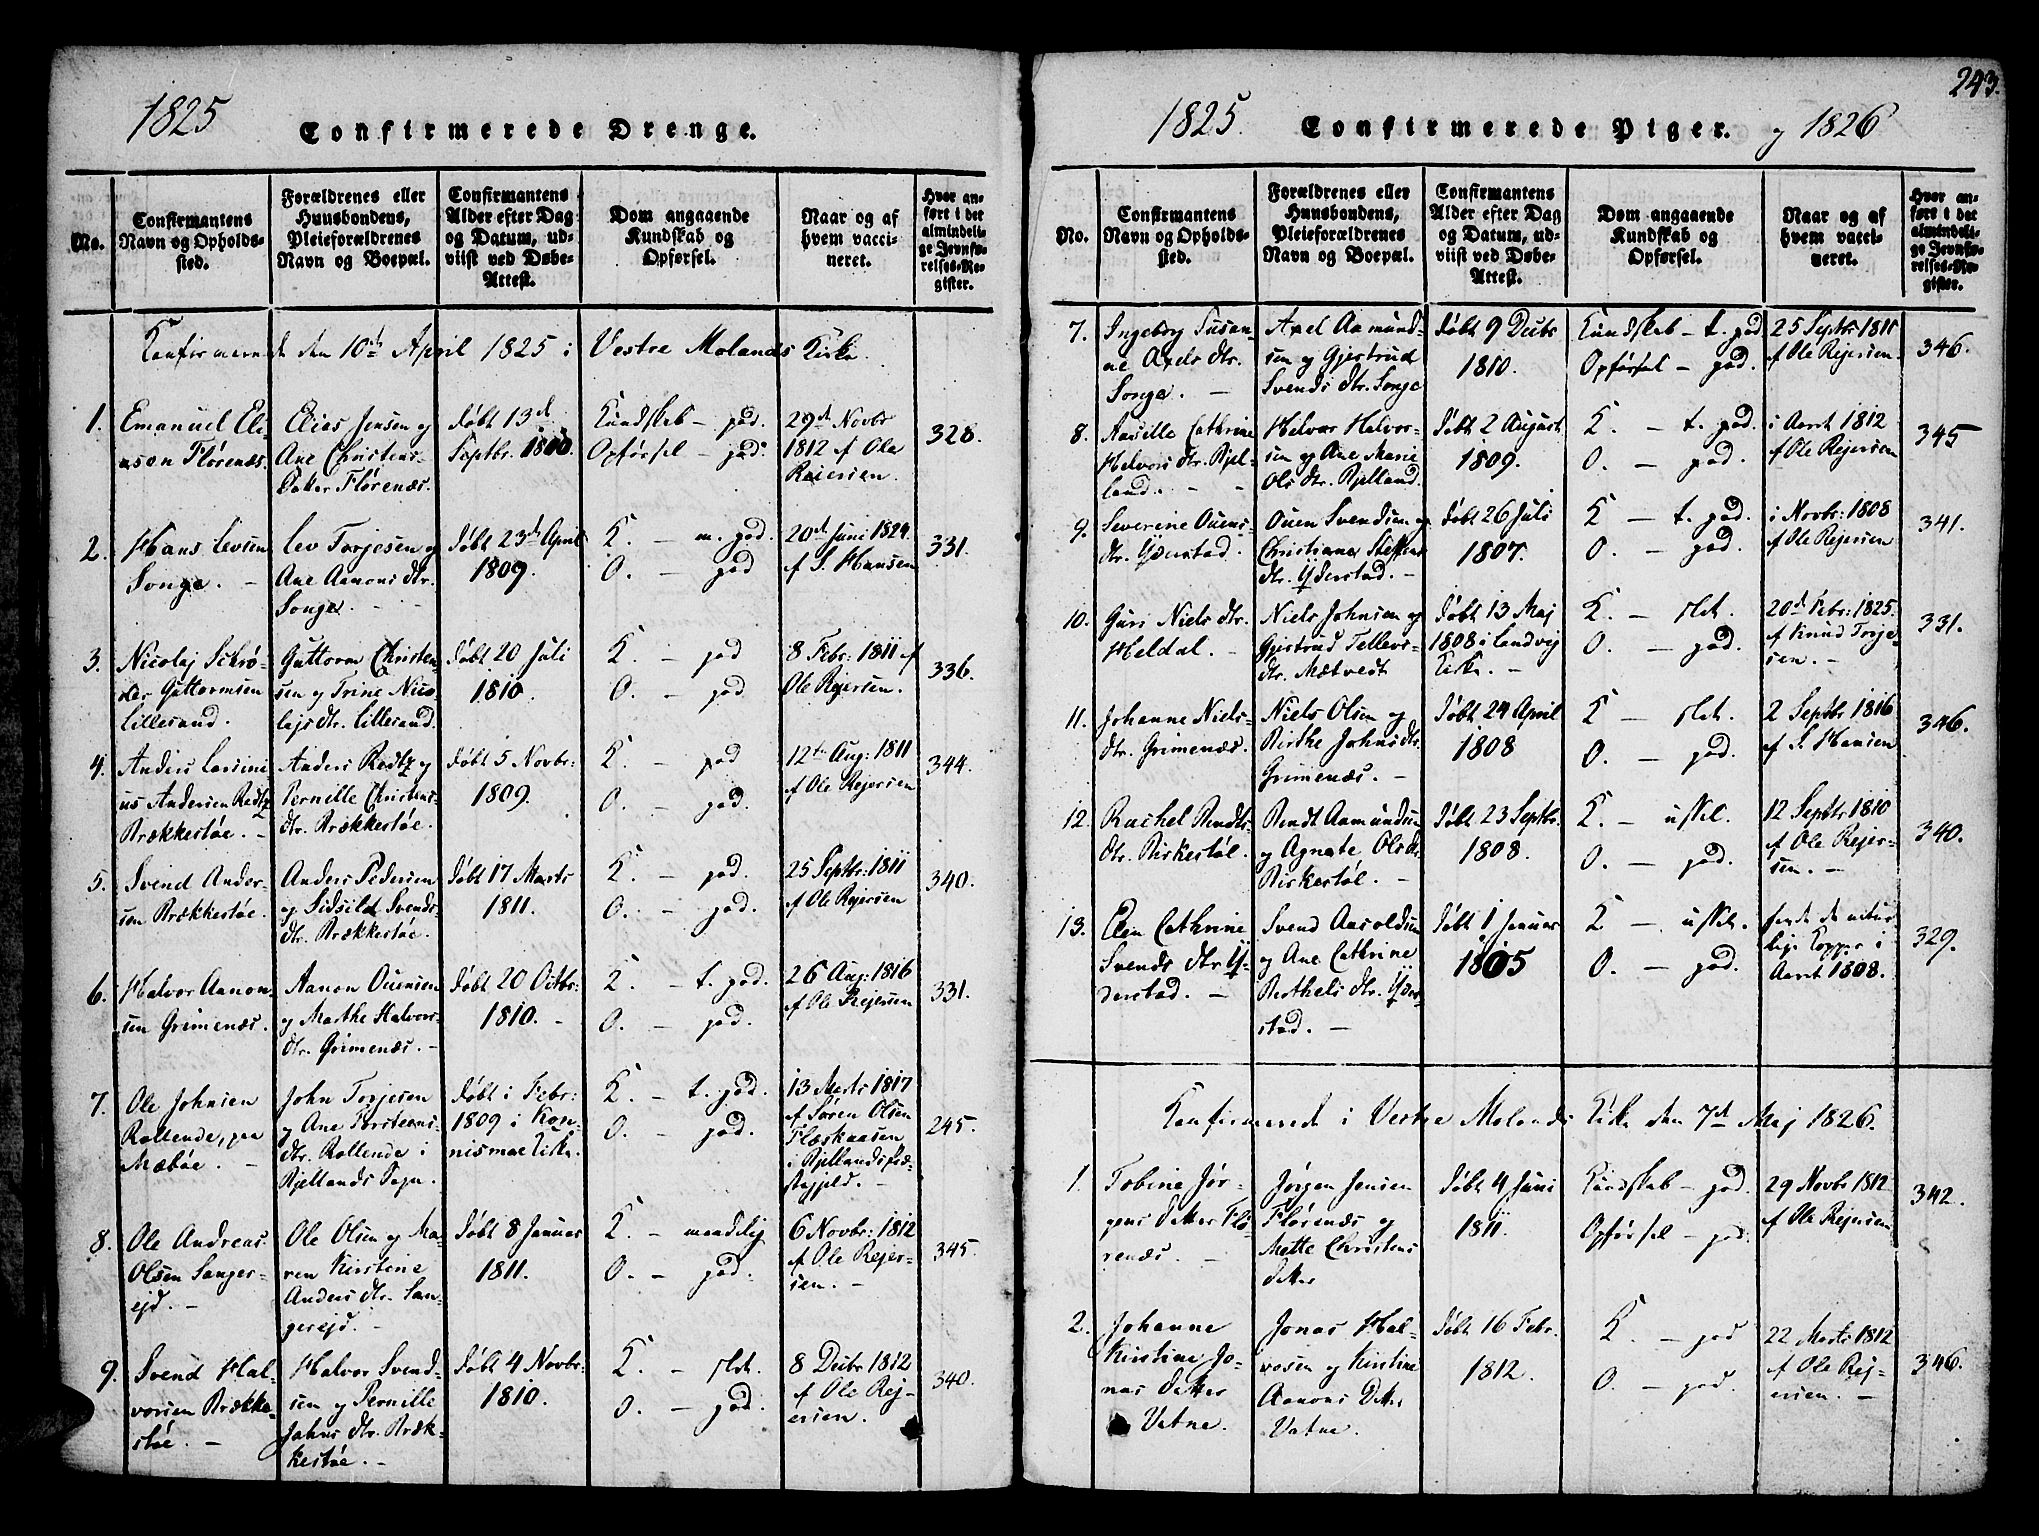 1825
Confirmerede Drenge.
No.
Confirmantens
Navn og Opholds-
sted.
Forældrenes eller
Huusbondens,
Pleieforældrenes
Navn og Boepæl.
Confirmantens
Alder efter Dag
og Datum, ud-
viist ved Døbe-
Attest.
Dom angaaende
Kundskab og
Opførsel.
Naar og af
hvem vacci-
neret.
Hvor an-
ført i det
almindeli-
ge Jevnfø-
relses-Re-
gister.
Konfirmeret den 10de April 1825 i Vestre Molands Kirke
1.
Emanuel Eli-
asen Flørenæs.
Elias Jensen og
Ane Christens-
Datter Flørenæs.
døbt 13de
Septbr. 1810.
Kundskab - god.
Opførsel - god.
29de Novbr
1812 af Ole
Reiersen.
328.
2.
Hans Levsen
Songe. -
Lev Torjesen og
Ane Aanons dtr.
Songe. - -
døbt 23de April
1809.
K. - m. god.
O. - god
20de Juni 1824.
af S. Hansen
331.
3.
Nicolaj Schrø-
der Guttormsen
Lillesand.
Guttorm Christen-
sen og Trine Nico-
lajs dtr. Lillesand.
døbt 20 Juli
1810.
K. - god
O. - god
8 Febr: 1811 af
Ole Rejersen.
336.
4.
Anders Lassini
us Andersen Redtz
Brækkestøe. -
Anders Redtz og
Pernille Christens-
dtr. Brækkestøe.
døbt 5 Novbr:
1809.
K. - god
O. - god.
12te Aug: 1811
af Ole Rejersen
344.
5.
Svend Ander-
sen Brækkestøe.
Anders Pedersen
og Sidsild Svends-
dtr. Brækkestøe.
døbt 17 Marts
1811.
K. - god.
O. - god.
25 Septbr: 1811
af Ole Rejersen
340.
6.
Halvor Aanon-
sen Grimenæs.
Aanon Ouensen
og Marthe Halvors-
dtr. Grimenæs. -
døbt 20 Octbr:
1810. -
K. - t. god.
O. - god.
26 Aug: 1816
af Ole Rejersen
331.
7.
Ole Johnsen
Rollende, paa
Mæbøe. -
John Torjesen
og Ane Torstens-
dtr. Rollende i
Bjellands Sogn.
døbt i Febr:
1809 i Kon-
nismoe Kirke.
K. - t. god.
O. - god.
13 Marts 1817
af Søren Olsen
Flaskaasen
i Bjellands Præ-
stegjeld. -
245.
8.
Ole Andreas
Olsen Sanger-
ejd. -
Ole Olsen og Ma-
ren Kirstine
Anders dtr. San-
gerejd. -
døbt 8 Januar
1811.
K. - maadelig
O. - god.
6 Novbr: 1812
af Ole Rejer-
sen. -
345.
9.
Svend Hal-
vorsen Brække-
støe. -
Halvor Svend-
sen og Pernille
Jahns dtr. Bræk-
kestøe. -
døbt 4 Novbr.
1810.
K. - slet.
O. - god.
8 Decbr 1812
af Ole Rej-
ersen.
340.
243.
1825.
Confirmerede Piger.
og 1826
No.
Confirmantens
Navn og Opholds-
sted.
Forældrenes eller
Huusbondens,
Pleieforældrenes
Navn og Boepæl.
Confirmantens
Alder efter Dag
og Datum, ud-
viist ved Døbe-
Attest.
Dom angaaende
Kundskab og
Opførsel.
Naar og af
hvem vacci-
neret.
Hvor an-
ført i det
almindeli-
ge Jevnfø-
relses-Re-
gister.
7.
Ingeborg Susan-
ne Axels dtr.
Songe. -
Axel Aamund-
sen og Gjertrud
Svends dtr. Songe
døbt 9 Decbr
1810.
Kundskab - t. god
Opførsel - god.
25 Septbr: 1811
af Ole Rejersen
346.
8.
Aasille Cathrine
Helvors dtr. Bjel-
land. - -
Helvor Halvor-
sen og Ane Marie
Ols dtr. Bjelland.
døbt 2 August
1809.
K. - t. god.
O. - god.
i Aaret 1812
af Ole Rejersen
345
9.
Severine Ouens-
dtr. Yderstad.
Ouen Svendsen og
Christiane Steffens
dtr. Yderstad. -
døbt 26 Juli
1807.
K - t. god.
O. - god.
i Novbr: 1808
af Ole Rejersen
341.
10.
Guri Niels dtr.
Heldal. -
Niels Johnsen og
Gjertrud Tellevs-
dtr. Mætvedt
døbt 13 Maj
1808 i Landvig
Kirke. -
K. - slet.
O. - god.
20de Febr: 1825.
af Knud Torje-
sen. -
331.
11.
Johanne Niels-
dtr. Grimenæs.
Niels Olsen og
Birthe Johns dtr.
Grimenæs. -
døbt 24 April
1808
K - slet.
O. - god.
2 Septbr 1816
af S. Hansen
346.
12.
Rachel Bendts-
dtr. Birkestøl.
Bendt Aamundsen
og Agnete Ols dtr.
Birkestøl. -
døbt 23 Septbr.
1808.
K. - ussel.
O. - god.
12 Septbr 1810
af Ole Rejer-
sen. -
340.
13.
Elen Cathrine
Svends dtr. Y-
derstad. -
Svend Aasoldsen
og Ane Cathrine
Berthels dtr. Yder-
stad. -
døbt 1 Januar
1805
K - ussel.
O. - god.
havde de natur-
lige Kopper i
Aaret 1808.
329.
Konfirmeret i Vestre Molands Kirke den 7de Maj 1826.
1.
Tobine Jør-
gens datter Flø-
renæs. -
Jørgen Jensen
Flørenæs og
Mette Christens
datter
døbt 4 Juni
1811.
Kundskab - god.
Opførsel - god.
29 Novbr 1812
af Ole Rejersen
342.
2.
Johanne
Kirstine Jo-
nas datter
Vatne.
Jonas Hal-
vorsen og Kirstine
Aanons Datter
Vatne.
døbt 16 Febr.
1812.
K. - god
O. - god.
22 Marts 1812
af Ole Rej-
ersen. -
346.